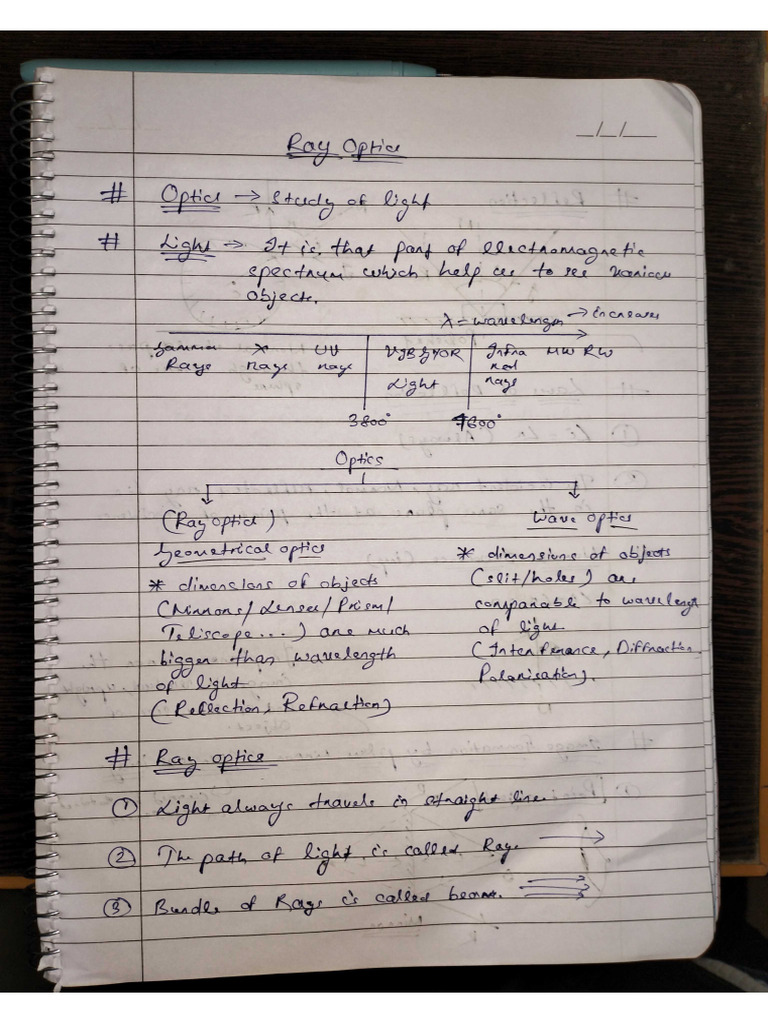 _/_/__
Ray Optics
# Optics → Study of light
# Light → It is that part of electromagnetic
spectrum which help us to see various
objects.
λ = wavelength → increases
Gamma X UV VIBGYOR Infra MW RW
Rays rays rays Light red
rays
3800° 7800°
Optics
(Ray optics) Wave optics
Geometrical optics
* dimensions of objects
(Mirrors/Lenses/Prism/
Teliscope....) are much
bigger than wavelength
of light
(Reflection, Refraction)
* dimensions of objects
(slit/holes) are
comparable to wavelength
of light
(Interference, Diffraction,
Polarisation).
# Ray optics
① Light always travels in straight line.
② The path of light is called Ray.
③ Bundle of Rays is called beam.